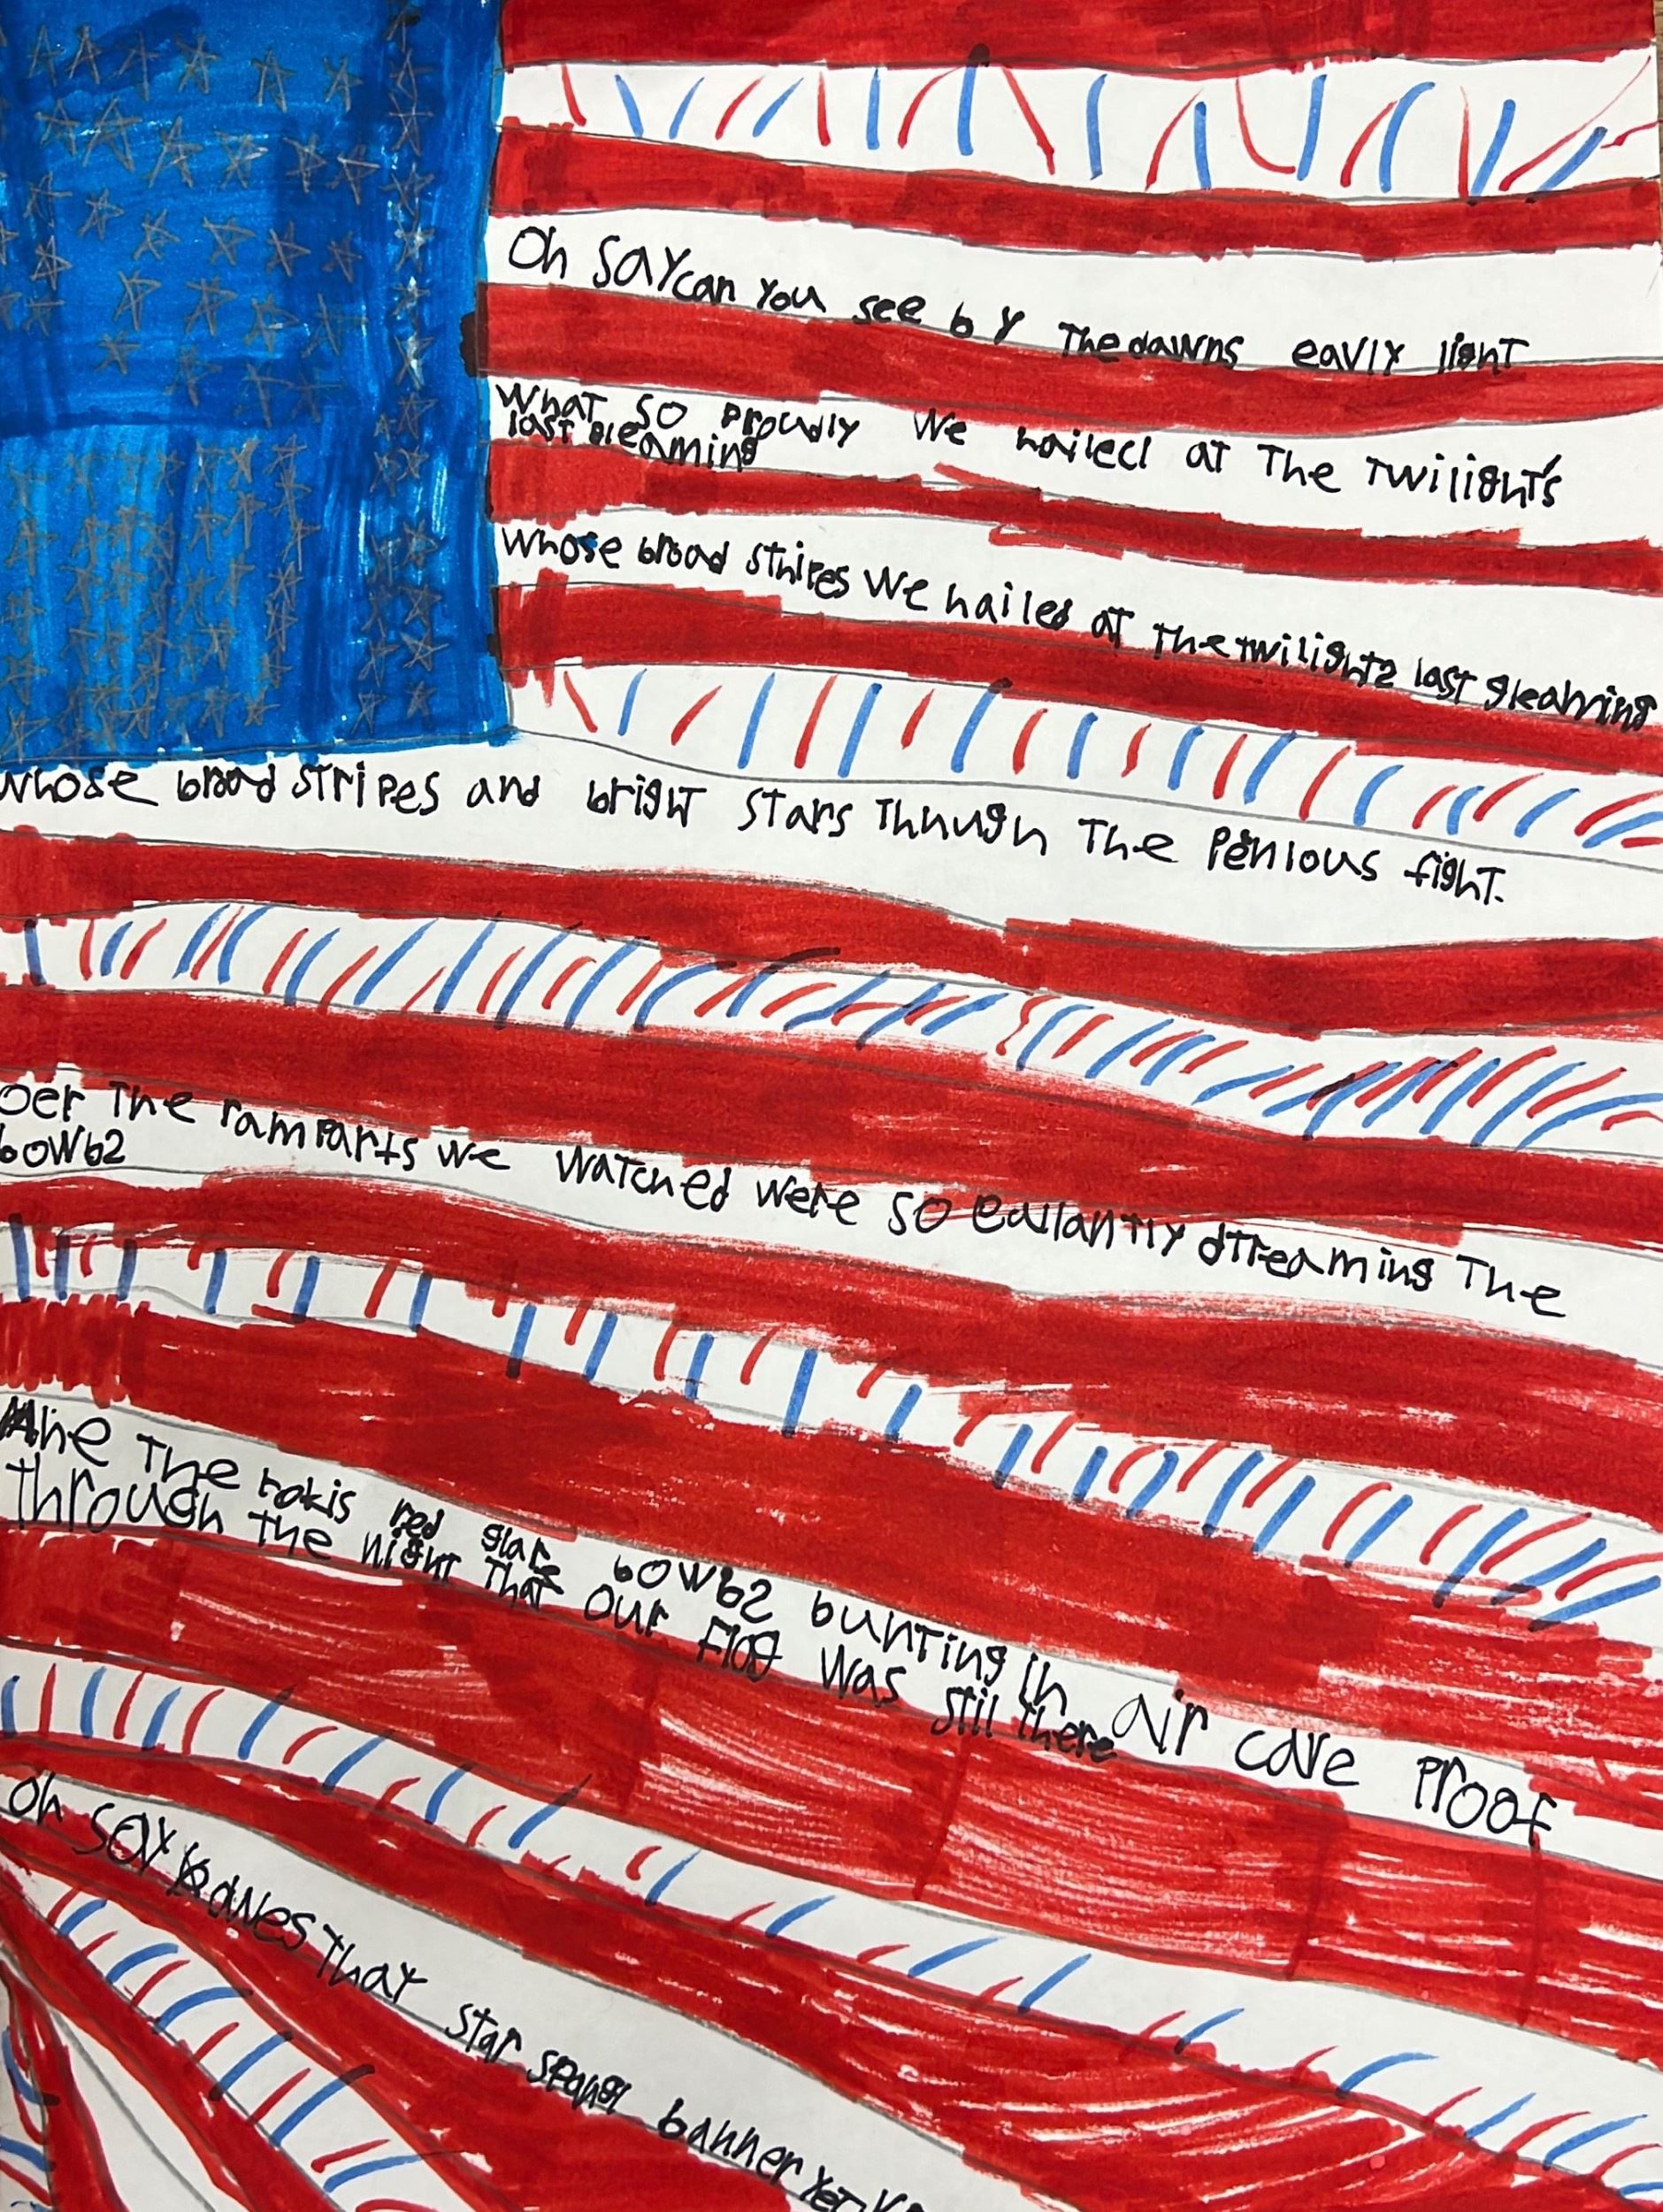 Oh say can you see by The dawns eavly light
What so proudly We hailed at The Twilight's
last gleaming
whose broad sthipes We hailed at The twilight2 last gleaming
whose broad stripes and bright stars Thhugh The Penious fight.
oer The ramparts we watched were so gallantly dtreaming The
bowb2
The rokis red glare bowb2 bunting in air cave Proof
through The night That our flag was still there
oh say That star spangl banner yet